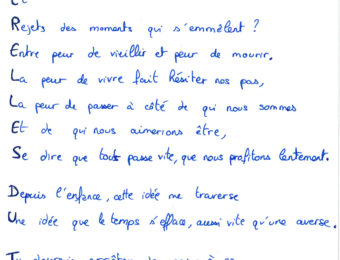 Et
Rejets des moments qui s'emmêlent ?
Entre peur de vieillir et peur de mourir.
La peur de vivre fait hésiter nos pas,
La peur de passer à côté de qui nous sommes
Et de qui nous aimerions être,
Se dire que tout passe vite, que nous profitons lentement.
Depuis l'enfance, cette idée me traverse
Une idée que le temps s'efface, aussi vite qu'une averse.